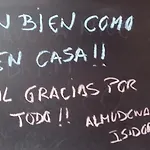 N BIEN COMO
EN CASA!!
IL GRACIAS POR
TODO!! ALMUDENA
ISIDO